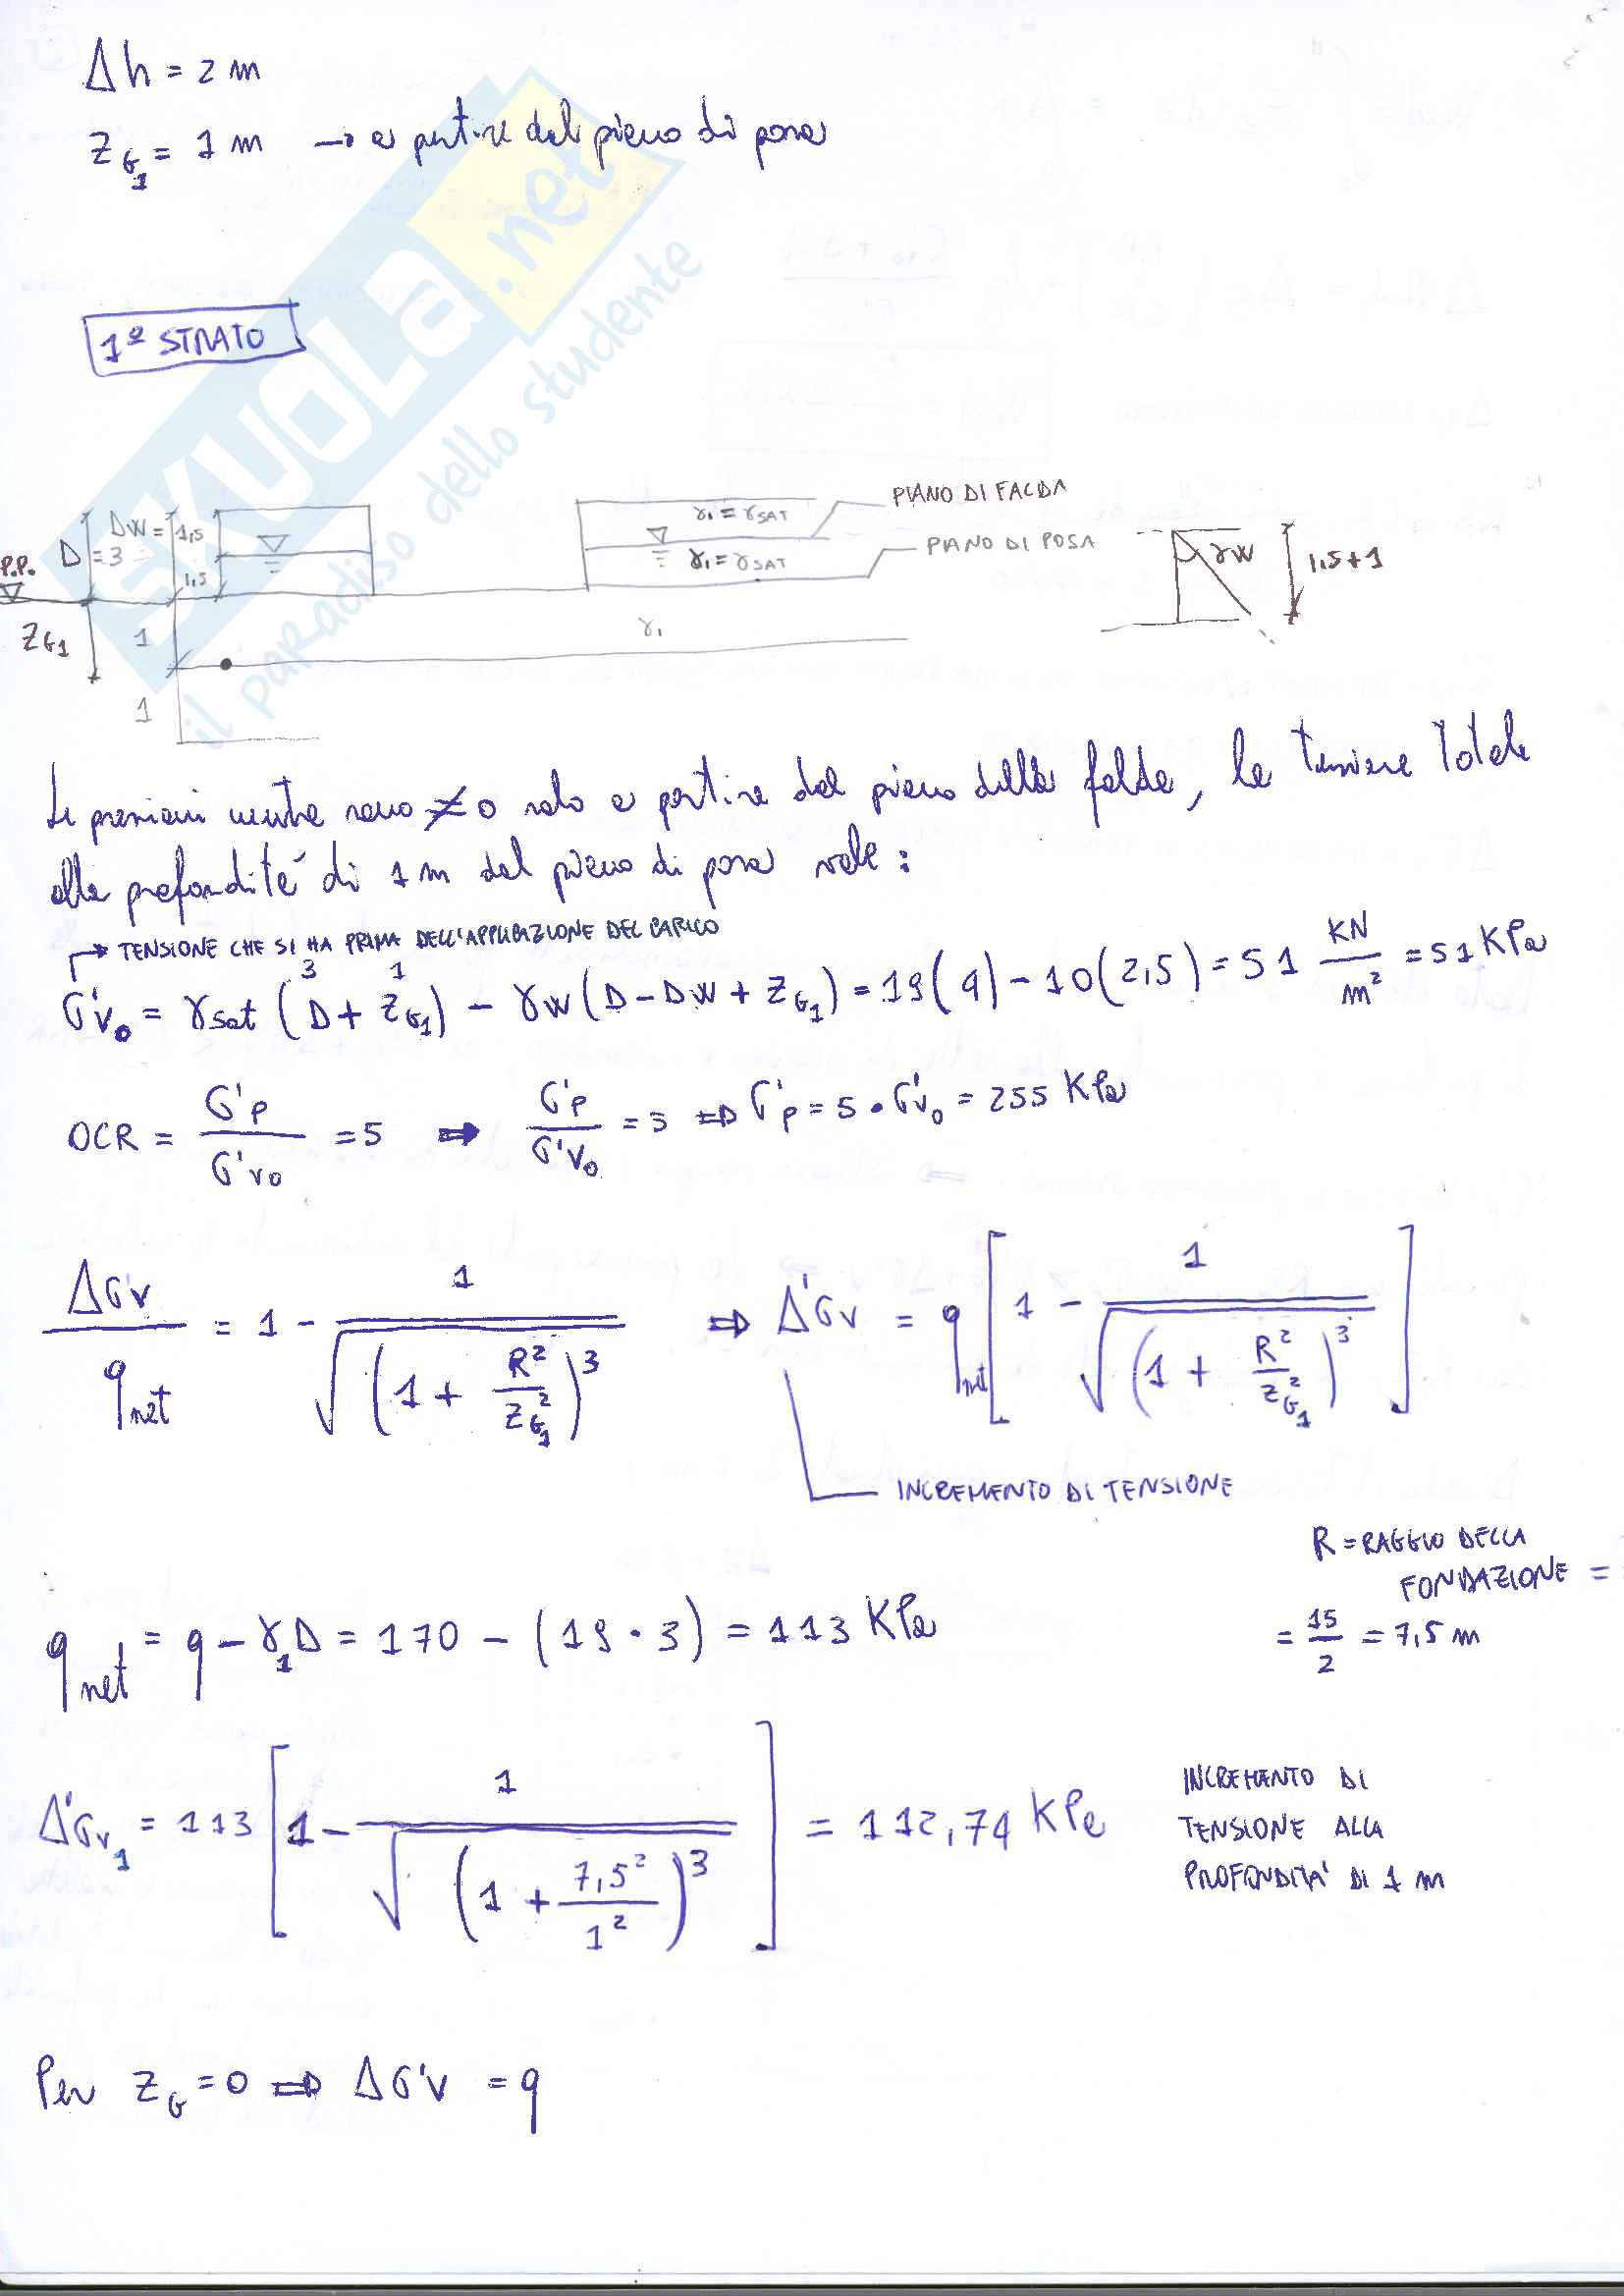 Δh = 2 m
Z_G1 = 1 m → a partire dal piano di posa
SKUOLA.net
il paradiso dello studente
1º STRATO
PIANO DI FALDA
PIANO DI POSA
γ1 = γSAT
γ1 = γSAT
DW = 1,5
D = 3
1,5
P.P.
Z_G1
1
1
γ1
γW
1,5+1
Le pressioni neutre sono ≠ 0 solo a partire dal piano della falda, la tensione totale
alla profondità di 1 m dal piano di posa vale:
→ TENSIONE CHE SI HA PRIMA DELL'APPLICAZIONE DEL CARICO
3 1
σ'v0 = γsat (D + Z_G1) - γw (D - DW + Z_G1) = 19(4) - 10(2,5) = 51 KN/m² = 51 KPa
OCR = σ'p/σ'v0 = 5 ⇒ σ'p/σ'v0 = 5 ⇒ σ'p = 5 · σ'v0 = 255 KPa
Δσv/q_net = 1 - 1/√(1 + R²/Z_G1²)³ ⇒ Δ'σv = q_net [1 - 1/√(1 + R²/Z_G1²)³]
INCREMENTO DI TENSIONE
R = RAGGIO DELLA
FONDAZIONE =
= 15/2 = 7,5 m
q_net = q - γ1 D = 170 - (19 · 3) = 113 KPa
Δ'σv1 = 113 [1 - 1/√(1 + 7,5²/1²)³] = 112,74 KPa
INCREMENTO DI
TENSIONE ALLA
PROFONDITA' DI 1 m
Per Z_G = 0 ⇒ Δσ'v = q